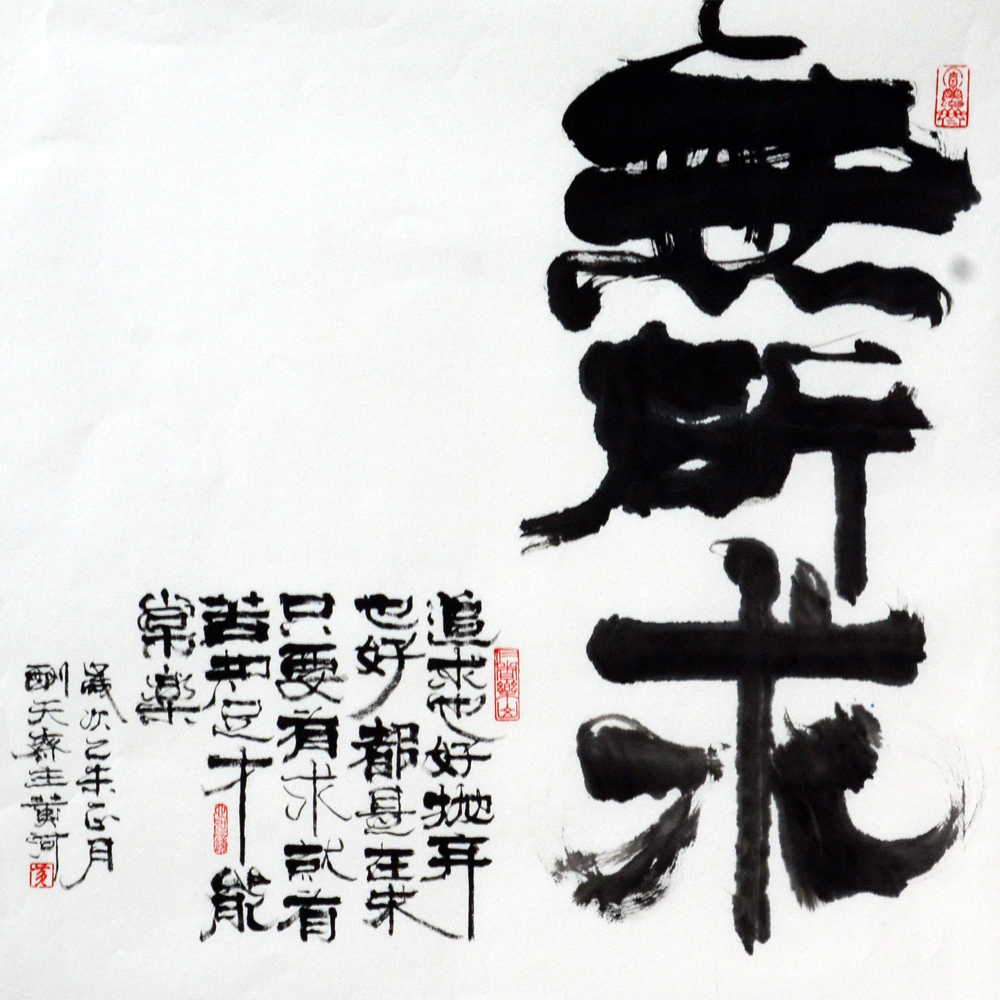 無所求
追求也好抛弃
也好都是在求
只要有求就有
苦知足才能
常樂
歲次乙未正月
酬天齋主黄河